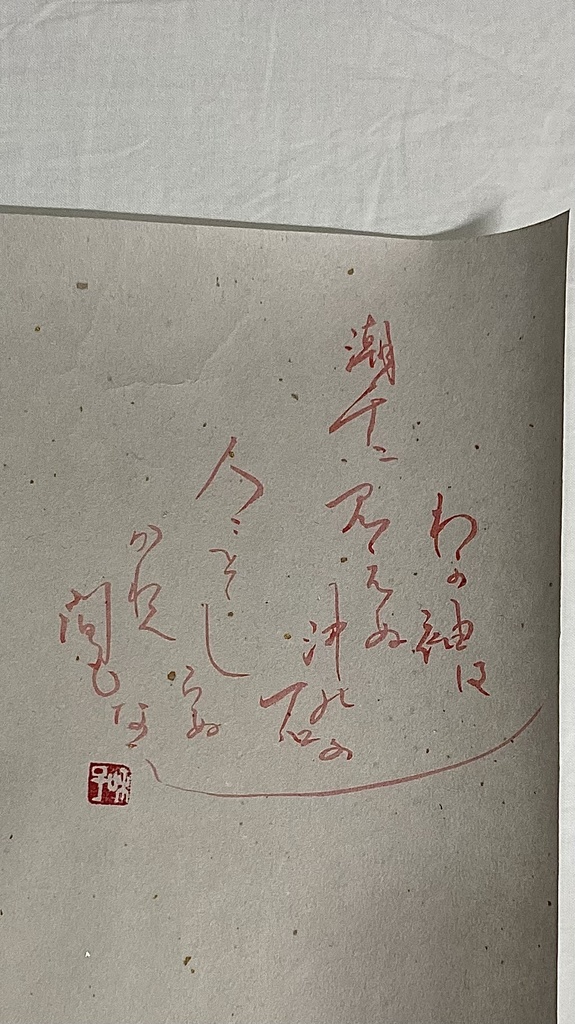 わか袖は
潮干二見えぬ
沖の
石の
人こそし
らね
かわく
間も
なし